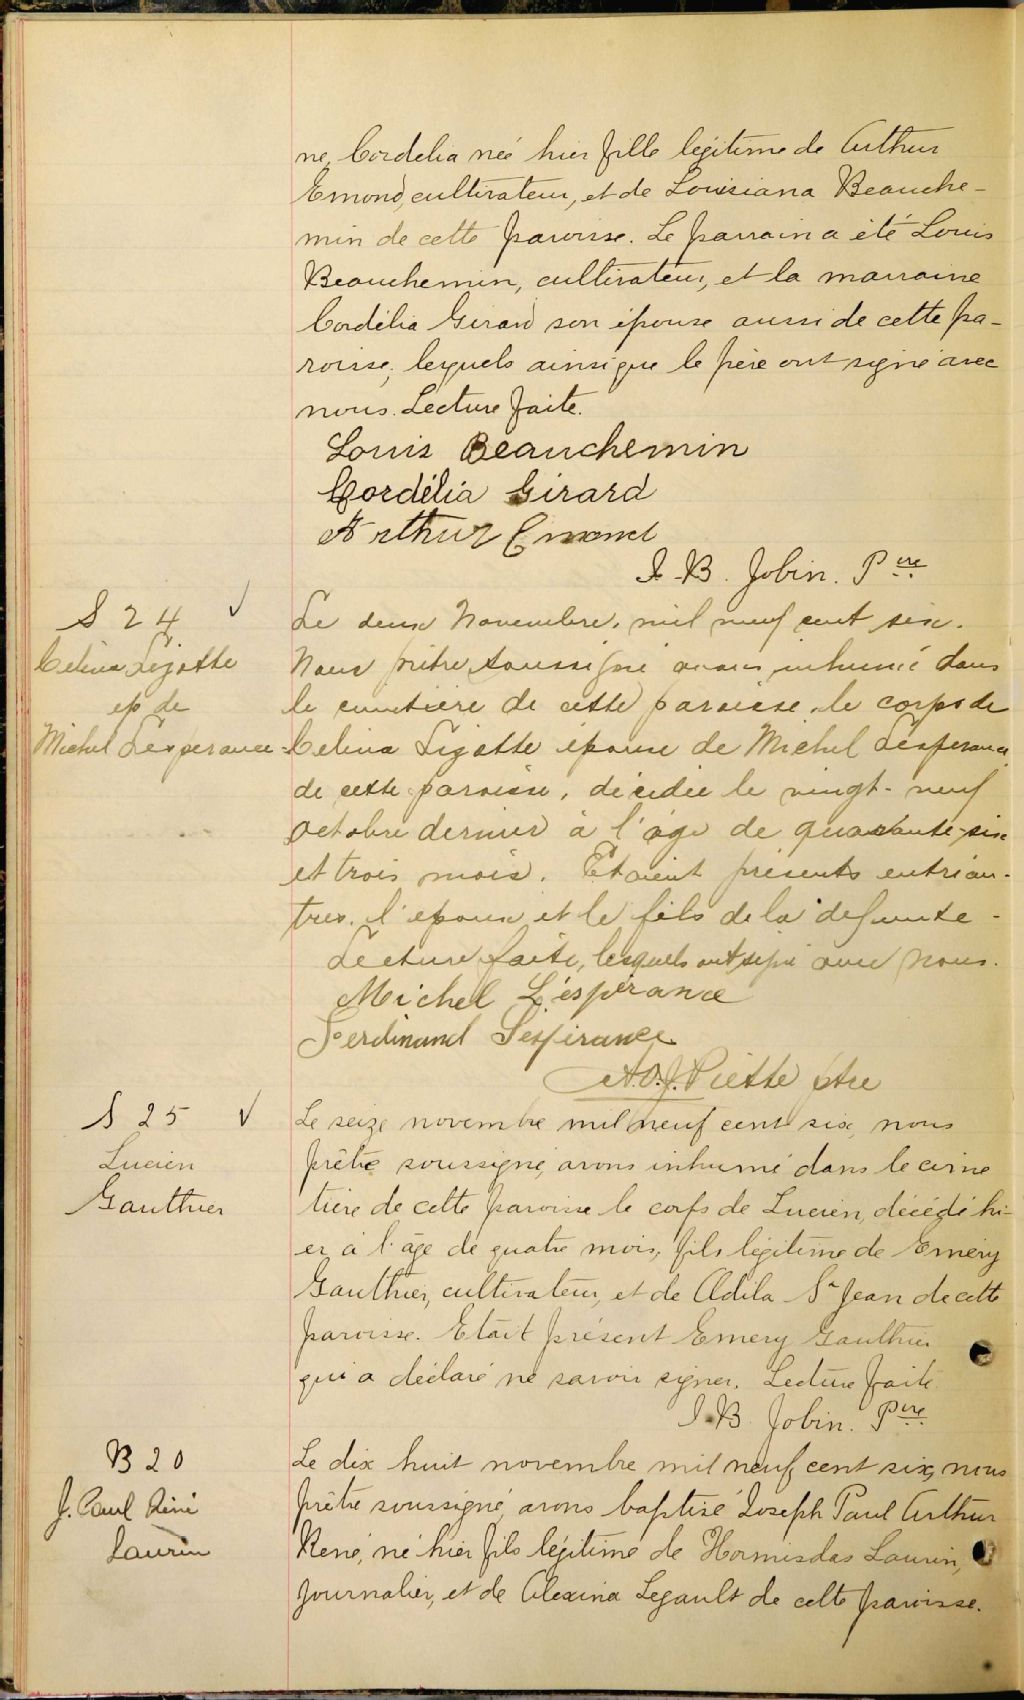 ne, Cordelia née hier fille légitime de Arthur
Emond, cultivateur, et de Louisiana Beauche-
min de cette paroisse. Le parrain a été Louis
Beauchemin, cultivateur, et la marraine
Cordélia Girard son épouse aussi de cette pa-
roisse, lesquels ainsi que le père ont signé avec
nous. Lecture faite.
Louis Beauchemin
Cordélia Girard
Arthur Emond
J. B. Jobin. Ptre
S 24
Celina Ligotte
ep de
Michel Lesperance
Le deux Novembre, mil neuf cent six.
Nous prêtre soussigné avons inhumé dans
le cimetière de cette paroisse, le corps de
Celina Ligotte épouse de Michel Lesperance
de cette paroisse, décédée le vingt-neuf
octobre dernier à l'âge de quarante-six
et trois mois. Etaient présents entr'au-
tres, l'époux et le fils de la defunte -
Lecture faite, lesquels ont signé avec nous.
Michel Léspérance
Ferdinand Lespérance
A.O.J. Piette ptre
S 25
Lucien
Gauthier
Le seize novembre mil neuf cent six, nous
prêtre soussigné, avons inhumé dans le cime
tière de cette paroisse le corps de Lucien, décédé hi-
er à l'âge de quatre mois, fils légitime de Emery
Gauthier, cultivateur, et de Adila St Jean de cette
paroisse. Etait présent Emery Gauthier
qui a déclaré ne savoir signer. Lecture faite.
J. B. Jobin. Ptre
B 20
J. Paul Réné
Laurin
Le dix huit novembre mil neuf cent six, nous
prêtre soussigné, avons baptisé Joseph Paul Arthur
René, né hier fils légitime de Hormisdas Laurin,
journalier, et de Alexina Legault de cette paroisse.